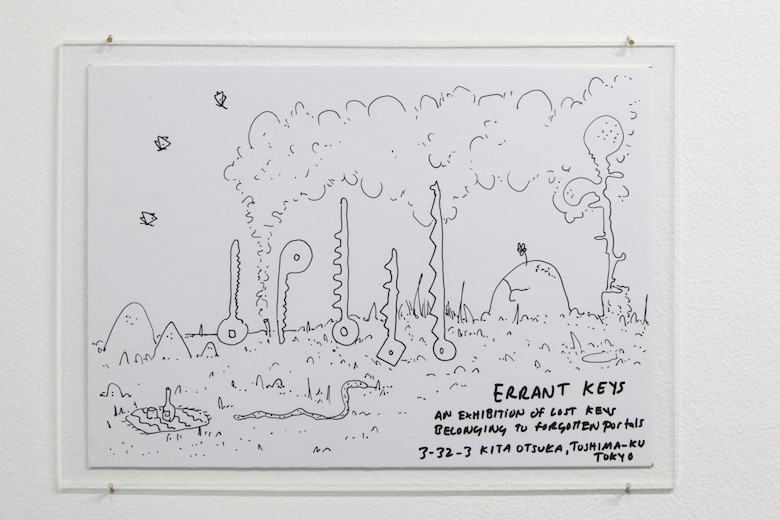 ERRANT KEYS
AN EXHIBITION OF LOST KEYS
BELONGING TO FORGOTTEN portals
3-32-3 KITA OTSUKA, TOSHIMA-KU
TOKYO